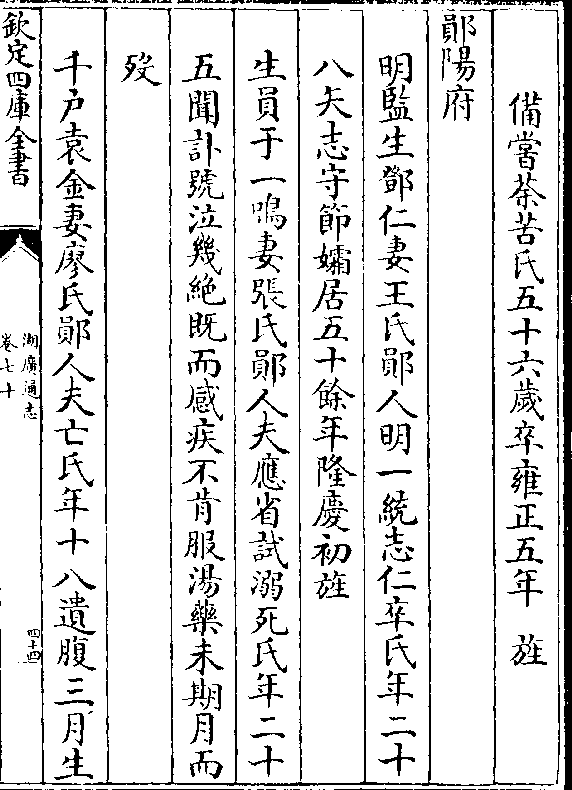 備嘗荼苦氏五十六歲卒雍正五年 旌
鄖陽府
明監生鄧仁妻王氏鄖人明一統志仁卒氏年二十
八矢志守節孀居五十餘年隆慶初旌
生員于一鳴妻張氏鄖人夫應省試溺死氏年二十
五聞訃號泣幾絶既而感疾不肯服湯藥未期月而
歿
千户袁金妻廖氏鄖人夫亡氏年十八遺腹三月生
欽定四庫全書
湖廣通志
卷七十
四十四